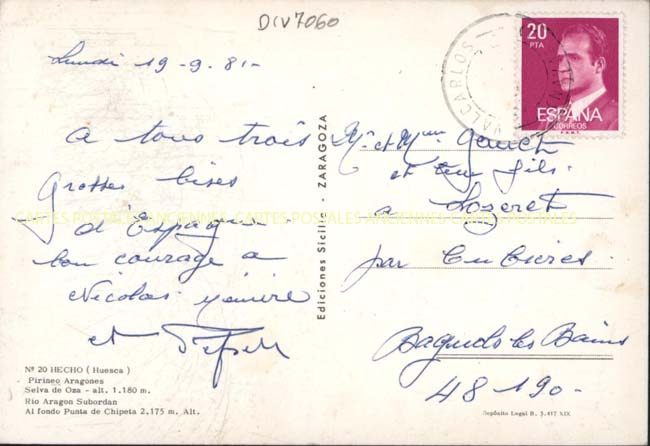 DIV7060
Lundi 19-9.81-
A tous trois
Grosses bises
d'Espagne
bon courage a
Nicolas
et
Nº 20 HECHO (Huesca)
Pirineo Aragones
Selva de Oza - alt. 1.180 m.
Rio Aragon Subordan
Al fondo Punta de Chipeta 2.175 m. Alt.
Ediciones Sicilia - ZARAGOZA
20
PTA
ESPAÑA
CORREOS
F.N.M.T.
VALCARLOS
Mr et Mme
et leur fils
a Lozeret
par Cubieres
Bagnols les Bains
48190-
Depósito Legal B. 3.417 XIX
CARTES POSTALES ANCIENNES CARTES POSTALES ANCIENNES CARTES POSTALES